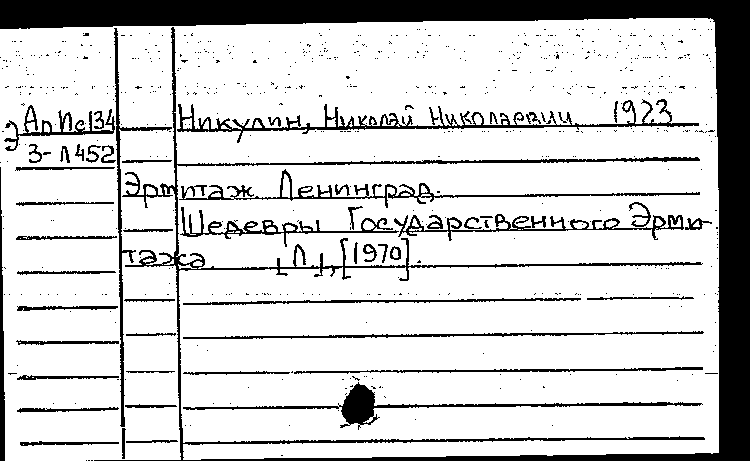 Э Ар Пс134 Никулин, Николай Николаевич, 1923
3-Л452
Эрмитаж Ленинград.
Шедевры Государственного Эрми-
тажа. [Л.], [1970].